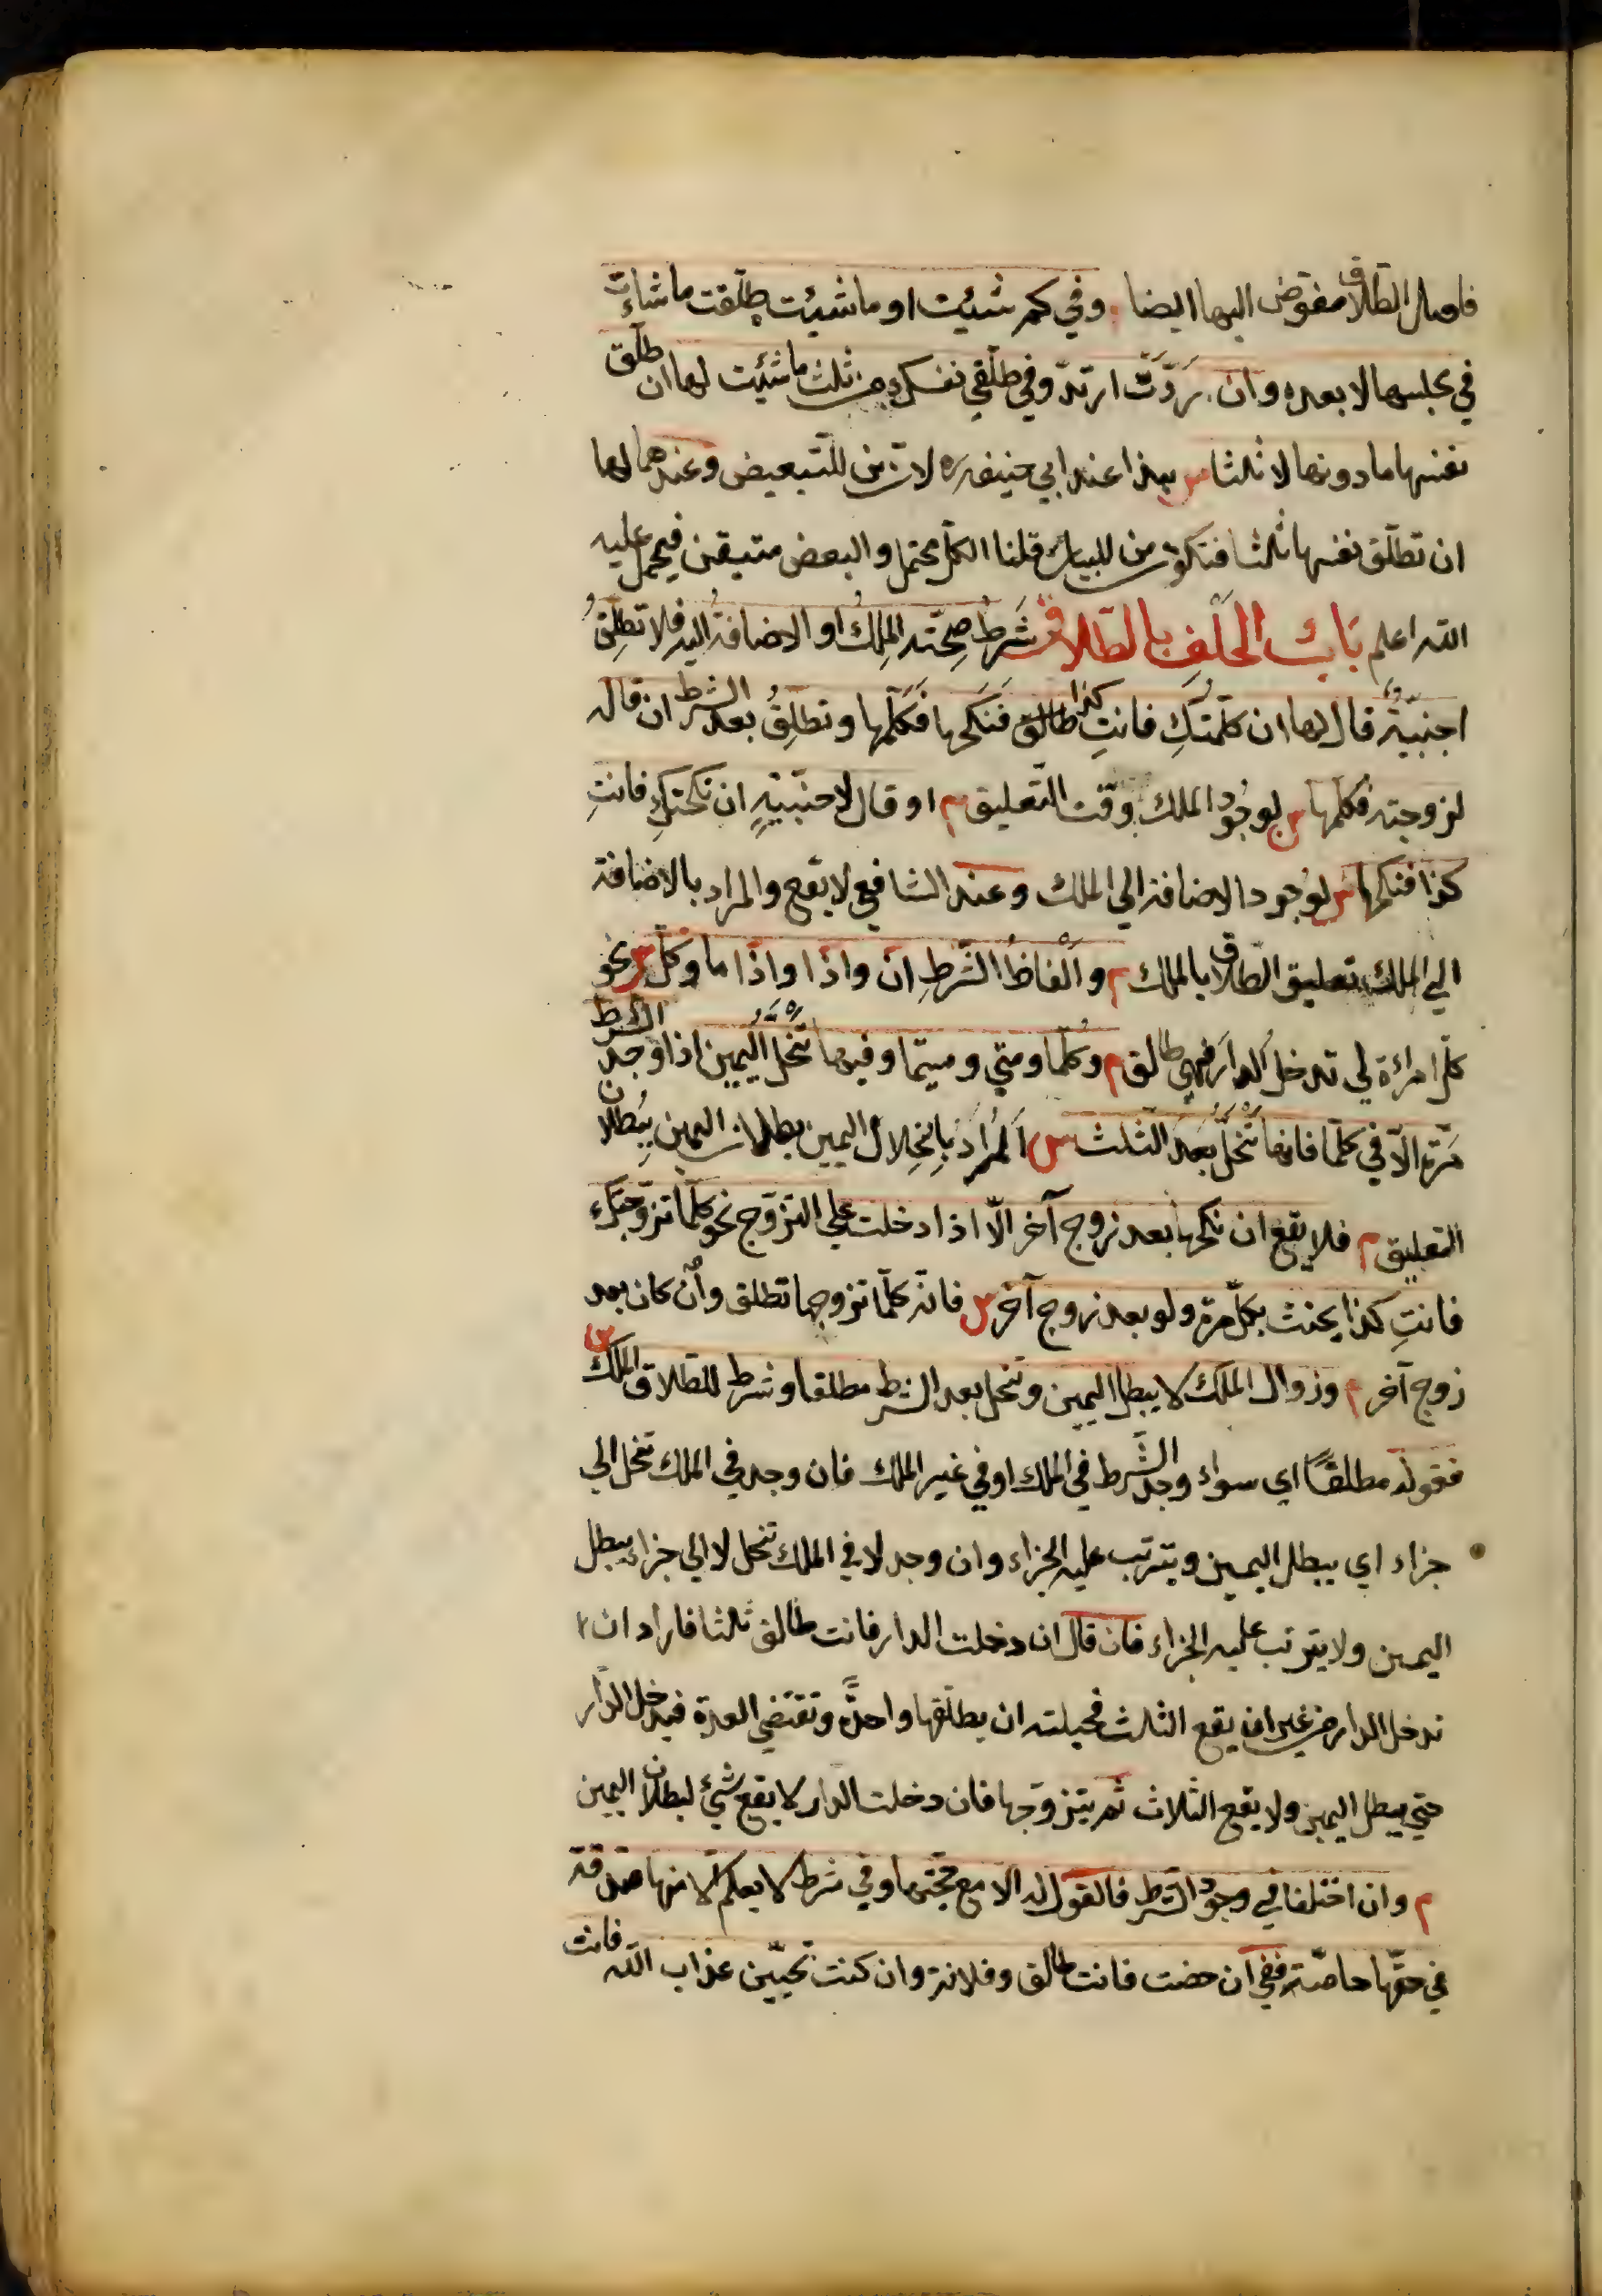 فاصل الطلاق مفوّض اليها ايضا م وفي كم شئت او ما شئت طلّقت ما شاءت
في مجلسها لا بعده وان ردّت ارتدّ وفي طلّقي نفسك من ثلث ما شئت لها ان تطلّق
نفسها ما دونها لا ثلثا س هذا عند ابي حنيفه ره لانّ من للتّبعيض وعندهما لها
ان تطلّق نفسها ثلثا فتكون من للبيان قلنا الكلّ محتمل والبعض متيقن فيحمل عليه
الله اعلم باب الحلف بالطلاق شرط صحّته الملك او الاضافة اليه فلا تطلق
اجنبيّة قال لها ان كلّمتك فانتِ كذا طالق فنكحها فكلّمها وتطلق بعد الشرط ان قال
لزوجته فكلّمها س لوجود الملك وقت التّعليق م او قال لاجنبيّةٍ ان نكحتكِ فانتِ
كذا فنكحها س لوجود الاضافة الي الملك وعند الشافعي لا يقع والمراد بالاضافة
الي الملك تعليق الطلاق بالملك م والفاظ الشّرط ان واذا واذا ما وكلّ س نحو
كلّ امراءة لي تدخل الدار فهي طالق م وكلّما ومتي ومتيما وفيها تنحلّ اليمين اذا وجد الشرط
مرّة الّا في كلّما فانها تنحلّ بعد الثلث س المراد بانحلال اليمين بطلان اليمين ببطلان
التعليق م فلا يقع ان نكحها بعد زوج آخر الّا اذا دخلت علي التزوّج نحو كلّما تزوّجتك
فانتِ كذا يحنث بكلّ مرّة ولو بعد زوج آخر س فانّه كلّما تزوجها تطلق وان كان بعد
زوج آخر م وزوال الملك لا يبطل اليمين وتنحل بعد الشرط مطلقا وشرط للطلاق الملك س
فقوله مطلقًا اي سواء وجد الشّرط في الملك او في غير الملك فان وجد في الملك تنحل الي
جزاء اي يبطل اليمين ويترتب عليه الجزاء وان وجد لا في الملك تنحل لا الي جزاء يبطل
اليمين ولا يترتب عليه الجزاء فان قال ان دخلت الدار فانت طالق ثلثا فاراد ان
تدخل الدار من غير ان يقع الثلث فحيلته ان يطلّقها واحدةً وتقتضي العدة فيدخل الدّار
حتي يبطل اليمين ولا يقع الثلاث ثم يتزوّجها فان دخلت الدار لا يقع شئ لبطلان اليمين
م وان اختلفا في وجود الشرط فالقول له الا مع حجّتها وفي شرط لا يعلم الا منها صدقت
في حقّها خاصّة ففي ان حضت فانت طالق وفلانة وان كنت تحبّين عذاب الله فانت